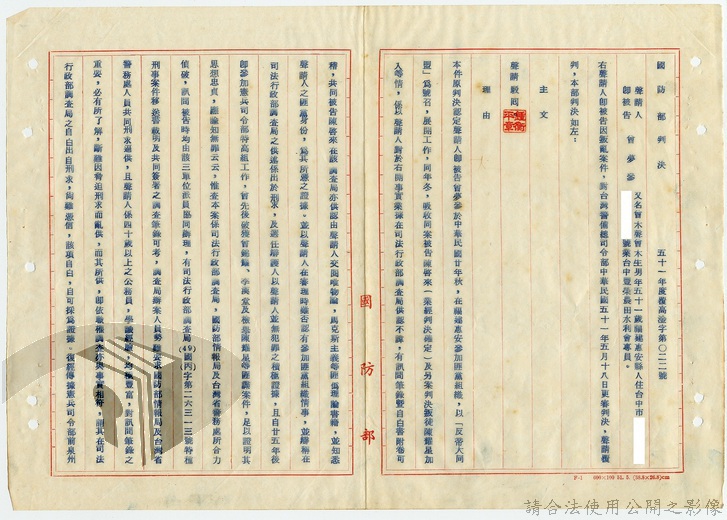 國防部判決
五十一年度覆高澄字第〇二二號
聲請人
即被告 曾夢參 又名曾木聲曾木生男年五十一歲福建惠安縣人住台中市
號業台中豐榮農田水利會專員。
右聲請人即被告因叛亂案件,對台灣警備總司令部中華民國五十一年五月十八日更審判決,聲請覆
判,本部判決如左:
主文
聲請駁回
理由
本件原判決認定聲請人即被告曾夢參於中華民國廿年秋,在福建惠安參加匪黨組織,以「反帝大同
盟」為號召,展開工作,同年冬,吸收同案被告陳啓來(業經判決確定)及另案判決叛徒陳耀星加
入等情,係以聲請人對於右開事實業據在司法行政部調查局供認不諱,有訊問筆錄暨自白書附卷可
稽,共同被告陳啓來在該調查局亦供認由聲請人交閱唯物論,馬克斯主義等匪偽理論書籍,並知悉
聲請人之匪黨身份,為其所憑之證據。並以聲請人在審理時雖否認有參加匪黨組織情事,並辯稱在
司法行政部調查局之供述係出於刑求,及選任辯護人以聲請人並無犯罪之積極證據,且自廿五年後
即參加憲兵司令部特高組工作,首先後破獲曾鏡龍、李滿堂及檢舉陳耀星等匪諜案件,足以證明其
思想忠貞,請諭知無罪云云,惟查本案係司法行政部調查局,國防部情報局及台灣省警務處所合力
偵破,訊問被告時均由該三單位派員協同辦理,有司法行政部調查局(49)國丙字第二六三一三號特種
刑事案件移送書載明及共同簽署之調查筆錄可考,調查局辦案人員勢難要求國防部情報局及台灣省
警務處人員共同刑求逼供,且聲請人係四十歲以上之公務員,學識經驗,均極豐富,對訊問筆錄之
重要,必有所了解,斷難因脅迫刑求而亂供,而其所供,即依敵檔調查亦與事實相符,謂其在司法
行政部調查局之自白出自刑求,尚難憑信,該項自白,自可採為證據,復經傳據憲兵司令部前泉州
國防部
F-1 600×100 51. 5. (38.9×26.8)cm
請合法使用公開之影像